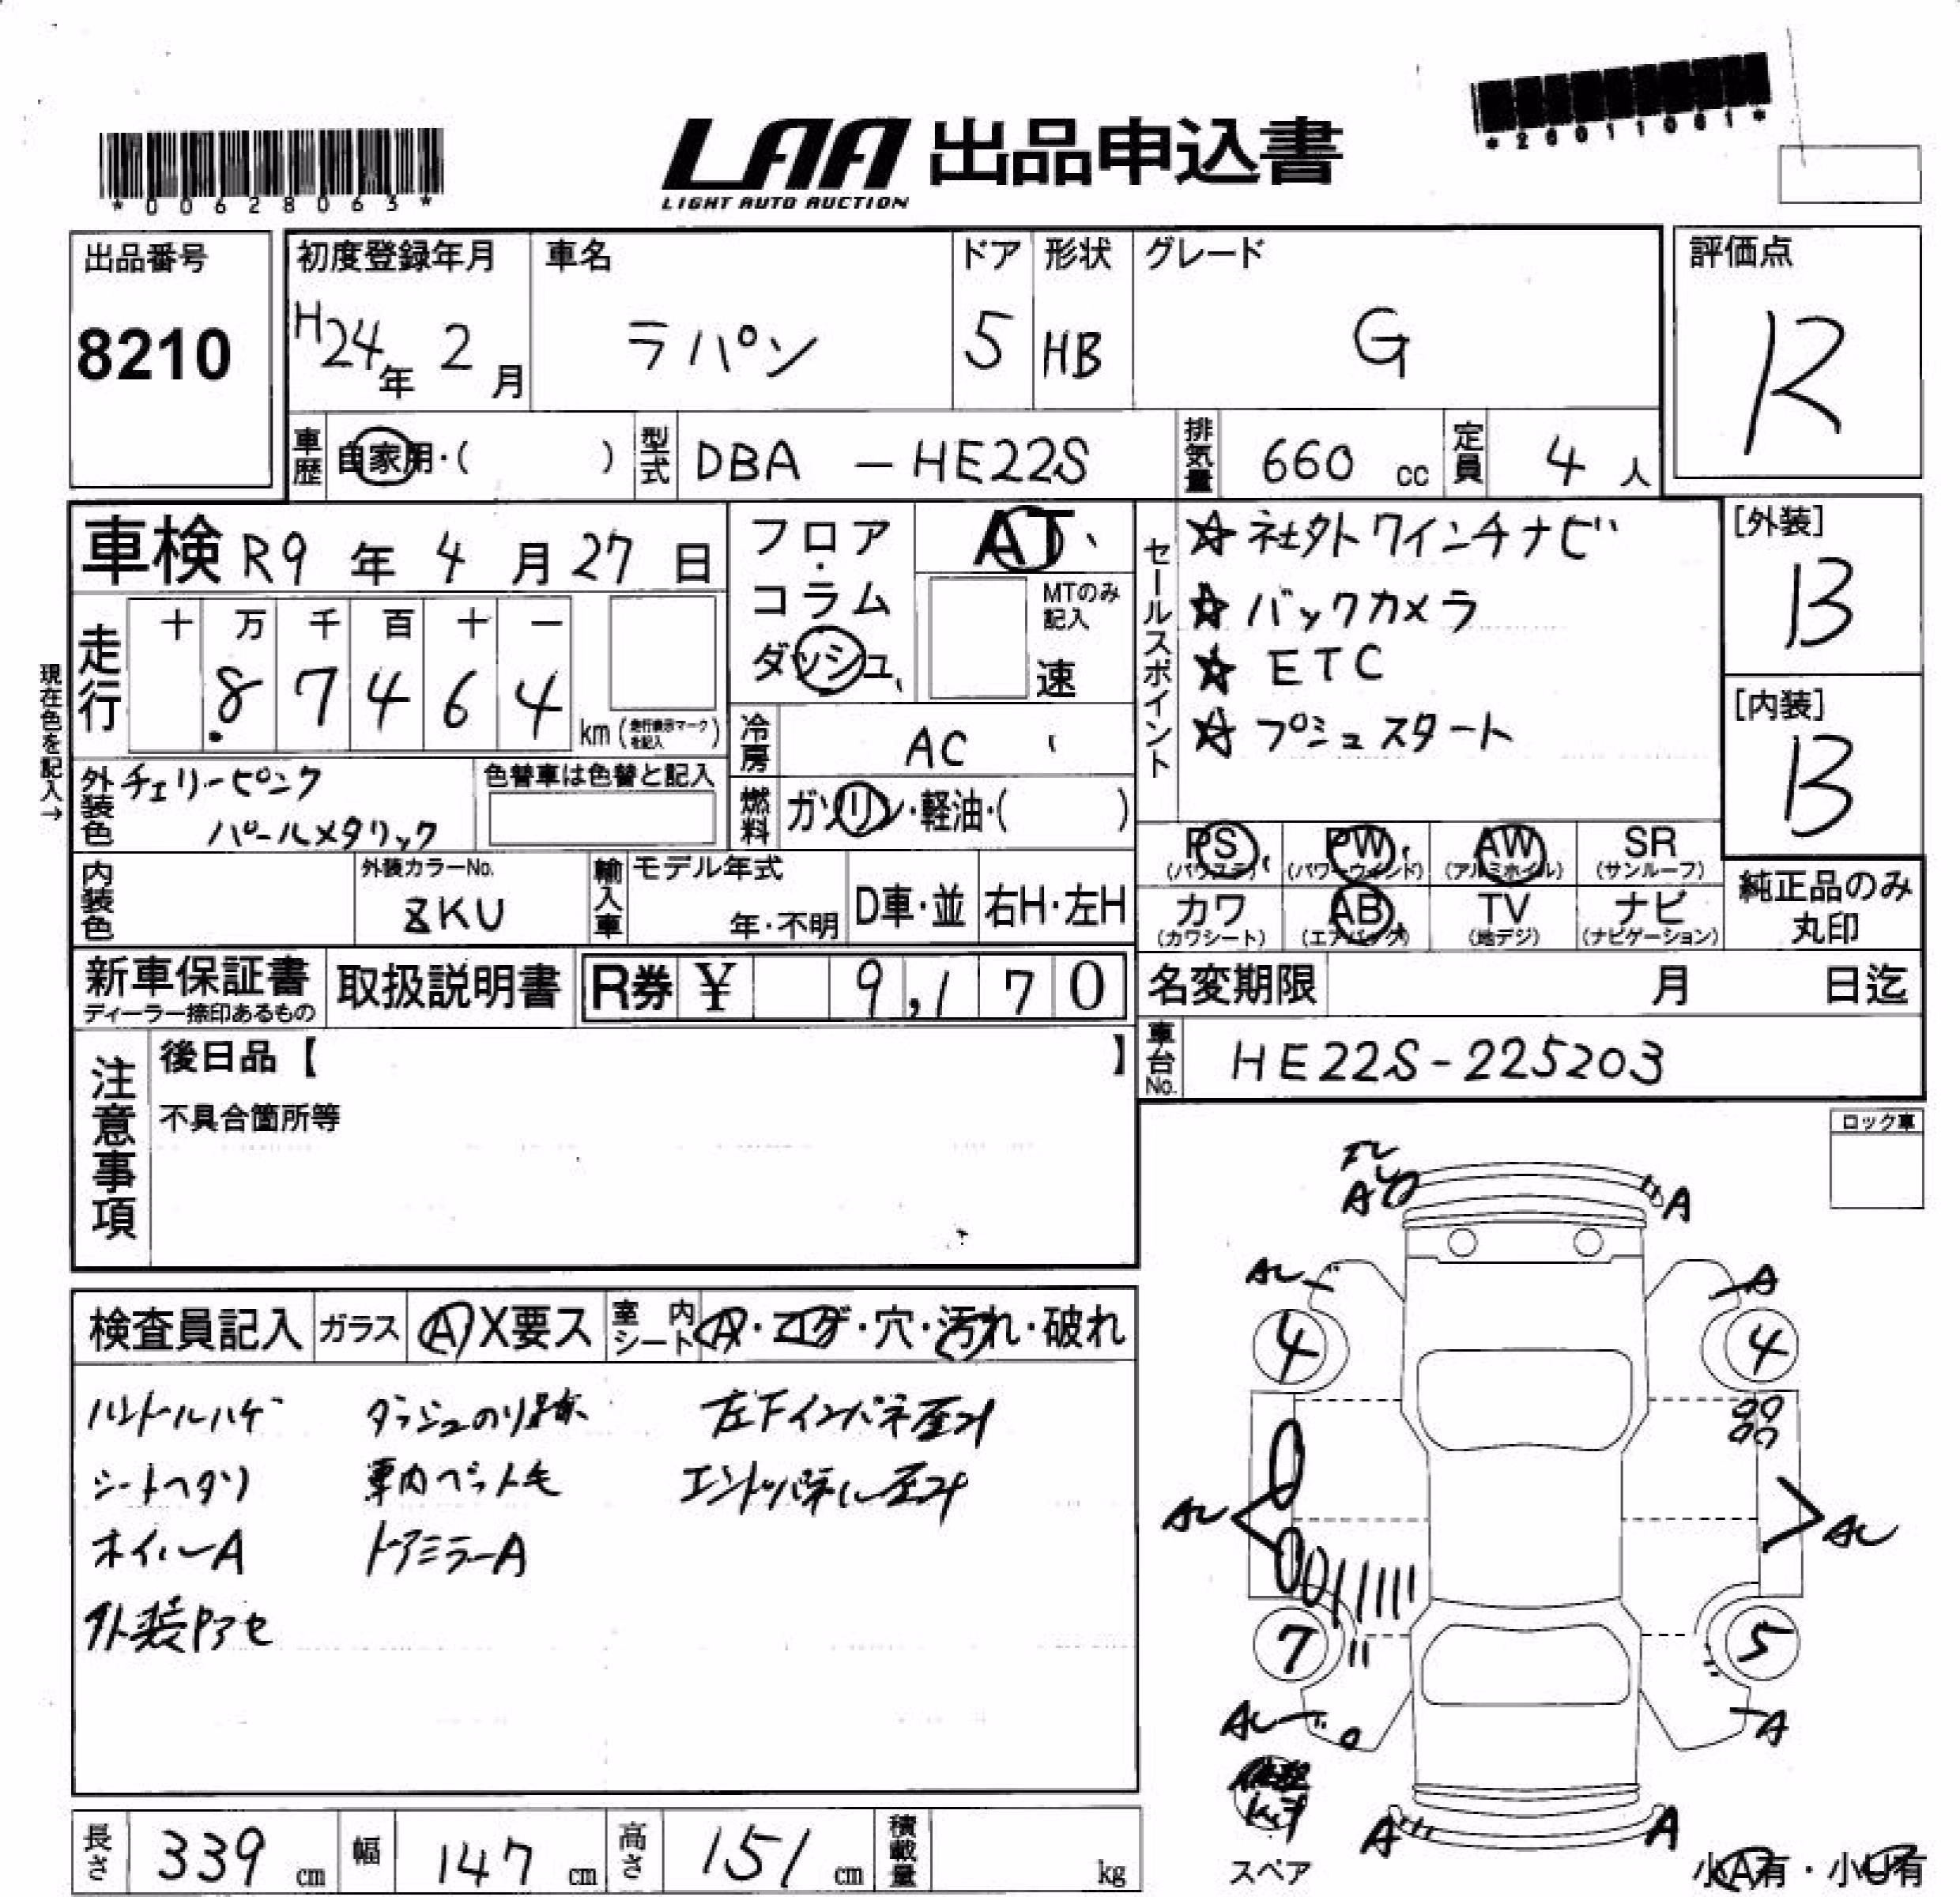 *00628063*
LAA 出品申込書
LIGHT AUTO AUCTION
*26011061*
出品番号
8210
初度登録年月
H24年 2月
車名
ラパン
ドア
5
形状
HB
グレード
G
評価点
R
車歴 自家用・( )
型式 DBA - HE22S
排気量 660 cc
定員 4 人
車検 R9 年 4 月 27 日
フロア・コラム
ダッシュ
AT
MTのみ記入
速
セールスポイント
☆ 社外ワインチナビ
☆ バックカメラ
☆ ETC
☆ プシュスタート
[外装]
B
[内装]
B
現在色を記入→
走行
十 万 千 百 十 一
8 7 4 6 4
km (走行表示マークを記入)
冷房 AC
燃料 ガソリン・軽油・( )
外装色 チェリーピンク
パールメタリック
色替車は色替と記入
内装色
外装カラーNo.
ZKU
輸入車 モデル年式
年・不明
D車・並
右H・左H
PS (パワステ)
PW (パワーウィンド)
AW (アルミホイル)
SR (サンルーフ)
カワ (カワシート)
AB (エアバック)
TV (地デジ)
ナビ (ナビゲーション)
純正品のみ
丸印
新車保証書
ディーラー捺印あるもの
取扱説明書
R券 ¥ 9,170
名変期限 月 日迄
車台No. HE22S-225203
注意事項
後日品【 】
不具合箇所等
ロック車
検査員記入
ガラス A X要ス
室内シート A・コゲ・穴・汚れ・破れ
ハンドルハゲ ダッシュのり跡 左下インパネ歪み
シートヘタリ 車内ペット毛 エンドパネル歪み
ホイルA ドアミラーA
外装アセ
A
A
AU
A
4
4
AU
AU
7
5
AU
A
A
A
スペア
小A有・小U有
長さ 339 cm
幅 147 cm
高さ 151 cm
積載量 kg